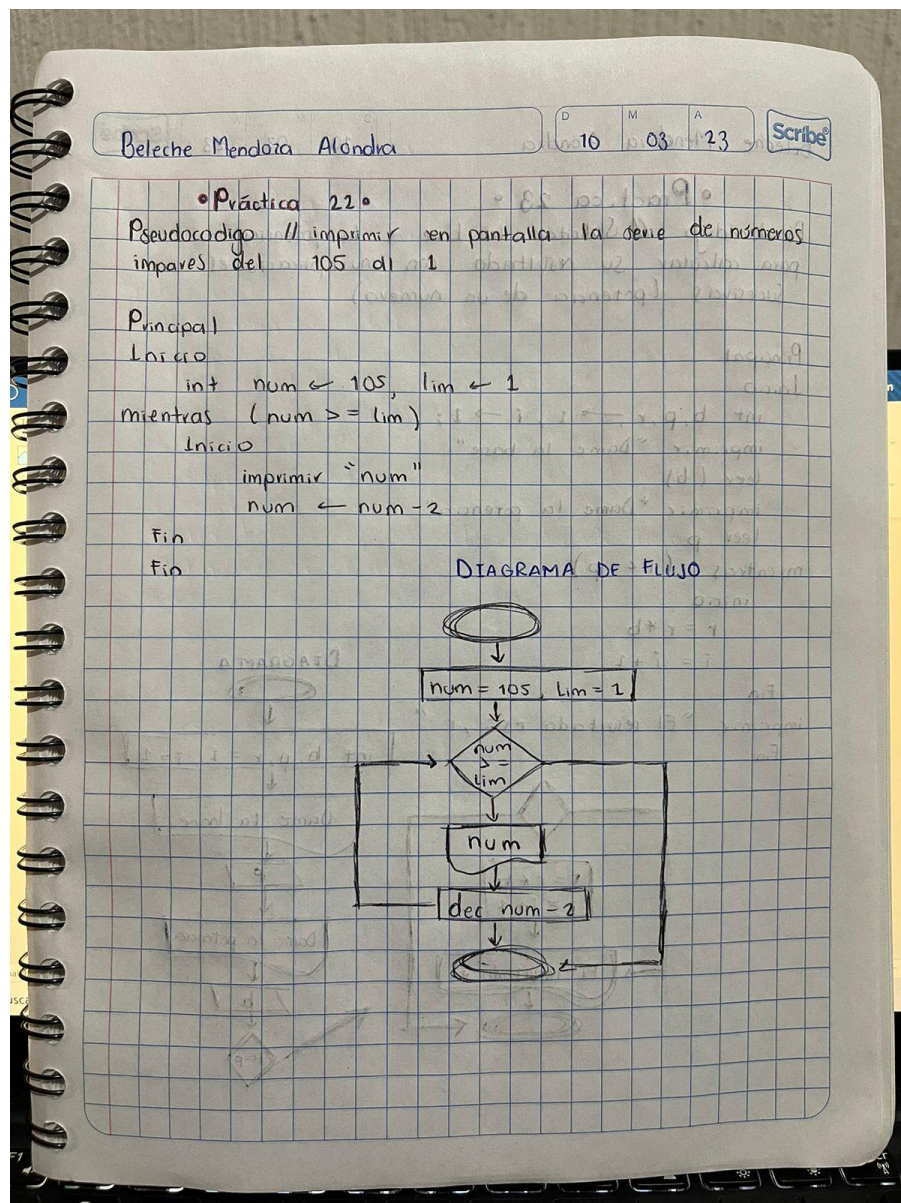 D M A
Beleche Mendoza Alondra 10 03 23 Scribe
•Práctica 22•
Pseudocodigo // imprimir en pantalla la serie de números
impares del 105 al 1
Principal
Inicio
int num ← 105, lim ← 1
mientras (num >= lim)
Inicio
imprimir "num"
num ← num -2
Fin
Fin
DIAGRAMA DE FLUJO
num = 105, Lim = 1
num
>=
Lim
num
dec num - 2